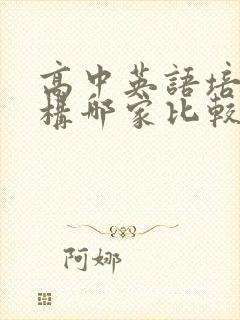 高中英語培
構哪家比較
阿娜